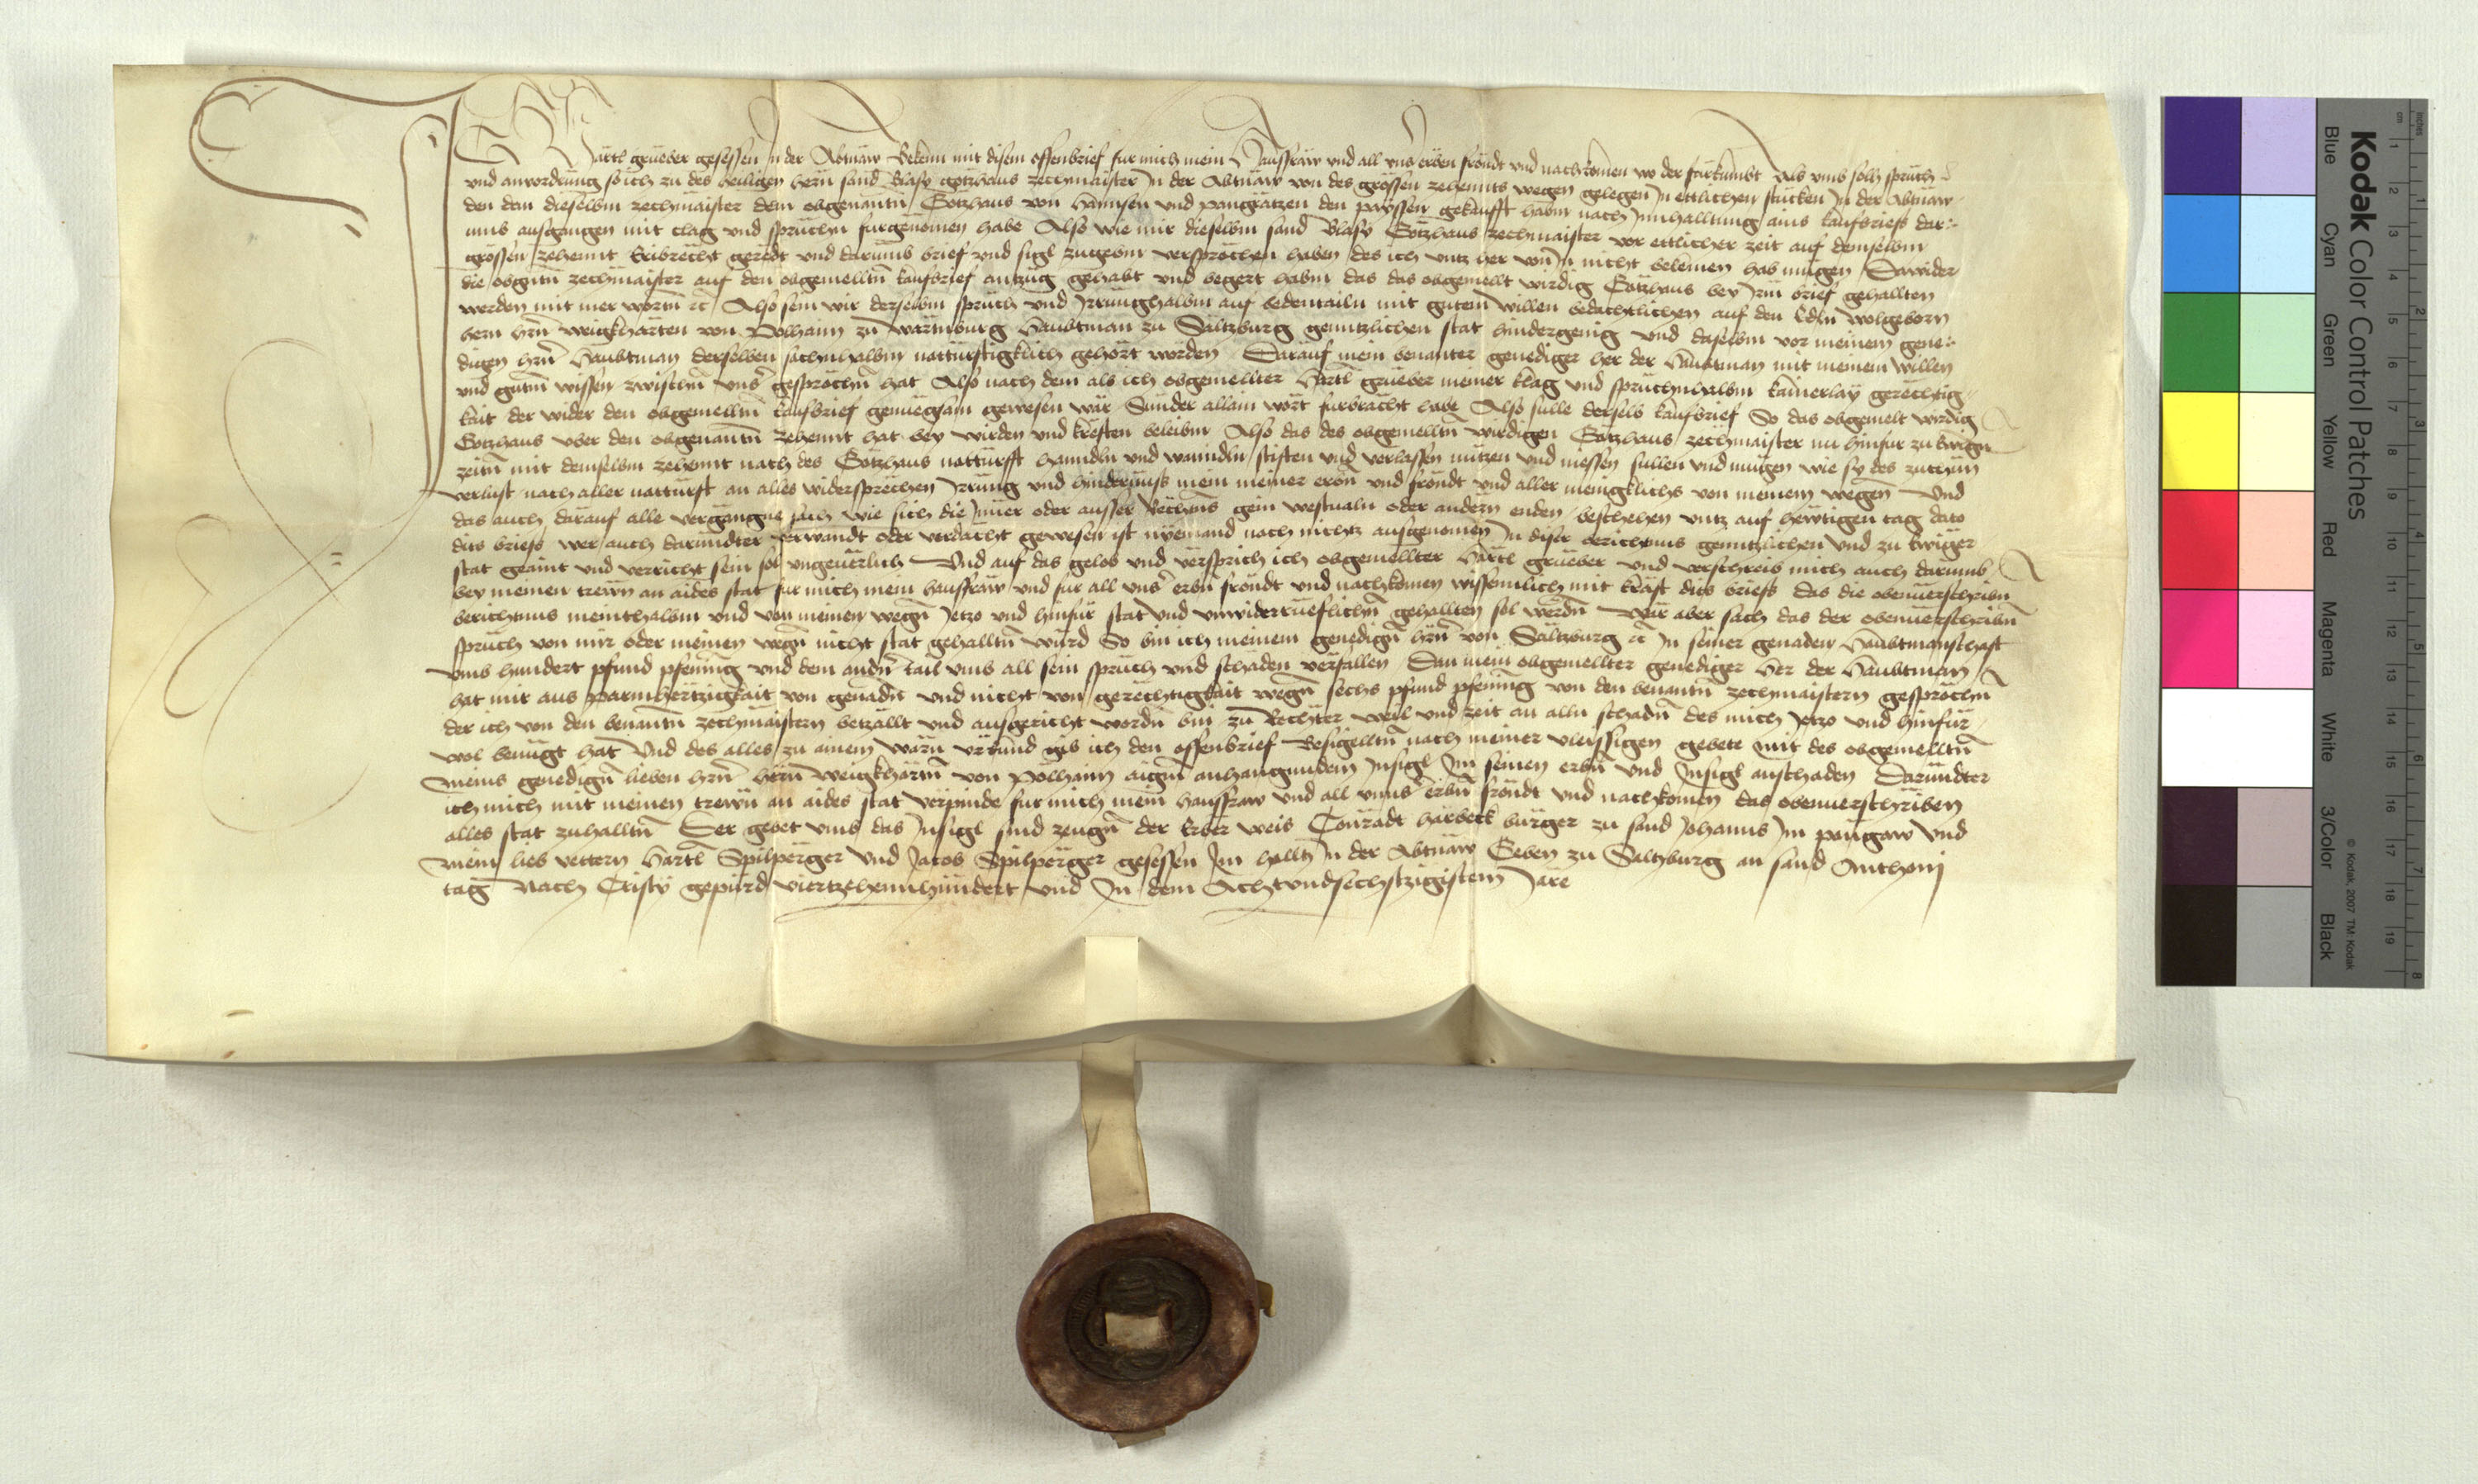 Ich Härtl grueber gesessen in der Abtnaw Bekenn mit disem offenbrief fur mich mein Hausfraw und all vns erben frôndt vnd nachkomen wo der fürkumbt Als vmb solh sprüch
vnd anvordrung so ich zu des heiligen hern sand Blasy gotzhaus zechmaister In der Abtnaw von des grossen zehennts wegen gelegen In ettlichen stucken In der Abtnaw
den dan dieselbm zechmaister dem obgenantn Gotzhaus von Hannsen vnd pangrätzen den prössen gekaufft habm nach Innhalltung ains kaufbriefs dar
umb ausgangen mit clag vnd sprüchn furgenomen habe Also wie mir dieselbm sand Blasy Gotzhaus zechmaister vor ettlicher zeit auf demselbm
grossen zehennt Erbrecht geredt vnd darumb brief vnd sigl zugebm versprochen haben des ich vntz her von In nicht bekemen hab mügen Dawider
die obgntn zechmaister auf den obgemelltn kaufbrief antzug gehabt vnd begert habm das das obgemellt wirdig Gotzhaus bey Irm brief gehallten
werden mit mer wortn etc Also sein wir derselbm spruch vnd Irrunghalbm auf bedentailn mit gutem willen bedachtlichen auf den Edln wolgeborn
hern hrn weigkharten von Polhaim zu wartmburg Haubtman zu Saltzburg genntzlichen stat hindergenig vnd daselbm vor meinem gene
digen hrn Haubtman derselben sachnhalbm notturftigklich gehort worden Darauf mein benanter genediger her der Haubtman mit meinem willen
vnd gutm wissen zwischn vns gesprochn hat Also nach dem als ich obgemellter Härtl grueber meiner klag vnd spruchnhalbm kainerlay gerechtig
kait der wider den obgemelltn kaufbrief genuegsam gewesen wär Sunder allain wort furbracht habe Also sulle derselb kaufbrief So das obgemelt wirdig
Gotzhaus vber den obgenantn zehennt hat bey wirden vnd kreften beleibm Also das des obgemelltn wirdigen Gotzhaus zechmaister nu hinfur zu Ewign
zeitn mit demselbm zehennt nach des Gotzhaus notturfft hanndln vnd wanndln stiften vnd verlassen nutzen vnd niessen sullen vnd mugen wie sy des zuthun
verlust nach aller notturft an alles widersprechen Irrung vnd hindernuss mein meiner erbn vnd frôndt vnd aller menigklichs von meinem wegen Vnd
das auch darauf alle vergangne sach wie sich die Inner oder ausser Rechtens gein westualn oder andern enden beschehen vntz auf hewtigen tag dato
dits briefs wer auch darundter verwandt oder verdacht gewesen ist nyemand noch nichtz ausgenomen In diser berichtnus genntzlichen vnd zu Ewiger
stat geaint vnd verricht sein sol vngeuerlich Vnd auf das gelob vnd versprich ich obgemellter Härtl grueber vnd verschreib mich auch darumb
bey meinen trewn an aides stat fur mich mein hausfraw vnd fur all vns erbn frôndt vnd nachkomen wissentlich mit kraft dits briefs das die obenuerschribn
berichtnus meinthalbm vnd von meinen wegn Jetzo vnd hinfür stat vnd vnwiderruefflichn gehallten sol werdn Wär aber sach das der obenuerschribn
spruch von mir oder meinen wegn nicht stat gehalltn wurd So bin ich meinem genedign hrn von Saltzburg etc In seiner genaden Haubtmanschaft
vmb hundert pfund pfening vnd dem andn tail vmb all sein spruch vnd schäden verfallen Dan mein obgemellter genediger her der Haubtman
hat mir aus parmhertzigkait von genadn vnd nicht von gerechtigkait wegn sechs pfund pfening von den benantn zechmaistern gesprochn
der ich von den benantn zechmaistern betzallt vnd ausgericht wordn bin zu Rechter weil vnd zeit an alln schadn des mich Jetzo vnd hinfür
wol benügt hat Vnd des alles zu ainem warn vrkund gib ich den offenbrief Besigelltn nach meiner vleissigen gebete mit des obgemelltn
meins genedign lieben hrn hern weigkhartn von Polhaim aigm anhangundem Insigl Im seinen erbn vnd Insigl anschaden Darundter
ich mich mit meinen trewn an aides stat verpinde fur mich mein hausfraw vnd all vnns erbn frôndt vnd nachkomen das obenuerschriben
alles stat zuhalltn Der gebet vmb das Insigl sind zeugn der Erber weis Conradt härbeck burger zu sand Johanns Im pangaw vnd
mein lieb vettern Härtl Spilperger vnd Jacob Spilperger gesessen Im hallz In der Abtnaw Geben zu Saltzburg an sand Anthonj
tag Nach Cristy gepürd viertzehennhundert vnd In dem Achtvndsechstzigistem Jare
Kodak Color Control Patches
Blue Cyan Green Yellow Red Magenta White 3/Color Black
© Kodak, 2007 TM: Kodak
inches 1 2 3 4 5 6 7 8
cm 1 2 3 4 5 6 7 8 9 10 11 12 13 14 15 16 17 18 19